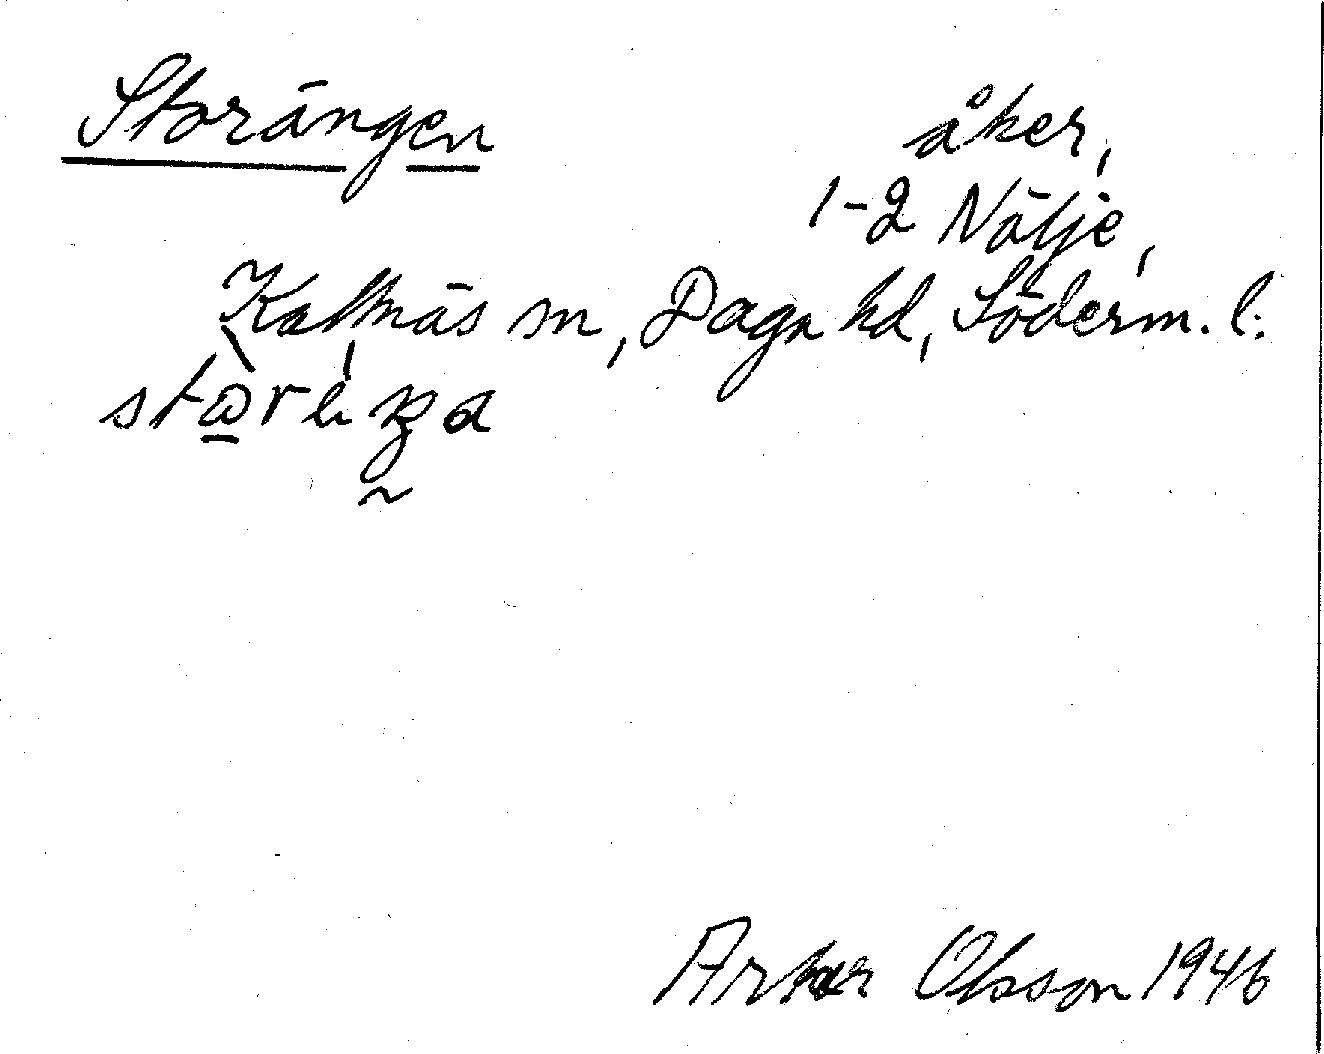 Storängen
åker,
1-2 Nälje,
Kattnäs sn, Daga hd, Söderm. l.
Artur Olsson 1946